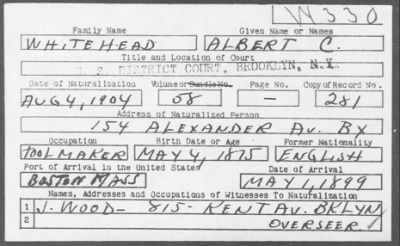 W330
Family Name Given Name or Names
WHITEHEAD ALBERT C.
Title and Location of Court
U.S. DISTRICT COURT, BROOKLYN, N.Y.
Date of Naturalization Volume or Bundle No. Page No. Copy of Record No.
AUG 4, 1904 58 — 281
Address of Naturalized Person
154 ALEXANDER AV. BX
Occupation Birth Date or Age Former Nationality
TOOLMAKER MAY 4, 1875 ENGLISH
Port of Arrival in the United States Date of Arrival
BOSTON MASS MAY 1, 1899
Names, Addresses and Occupations of Witnesses To Naturalization
1 J. WOOD — 815- KENT AV. BKLYN
2 OVERSEER